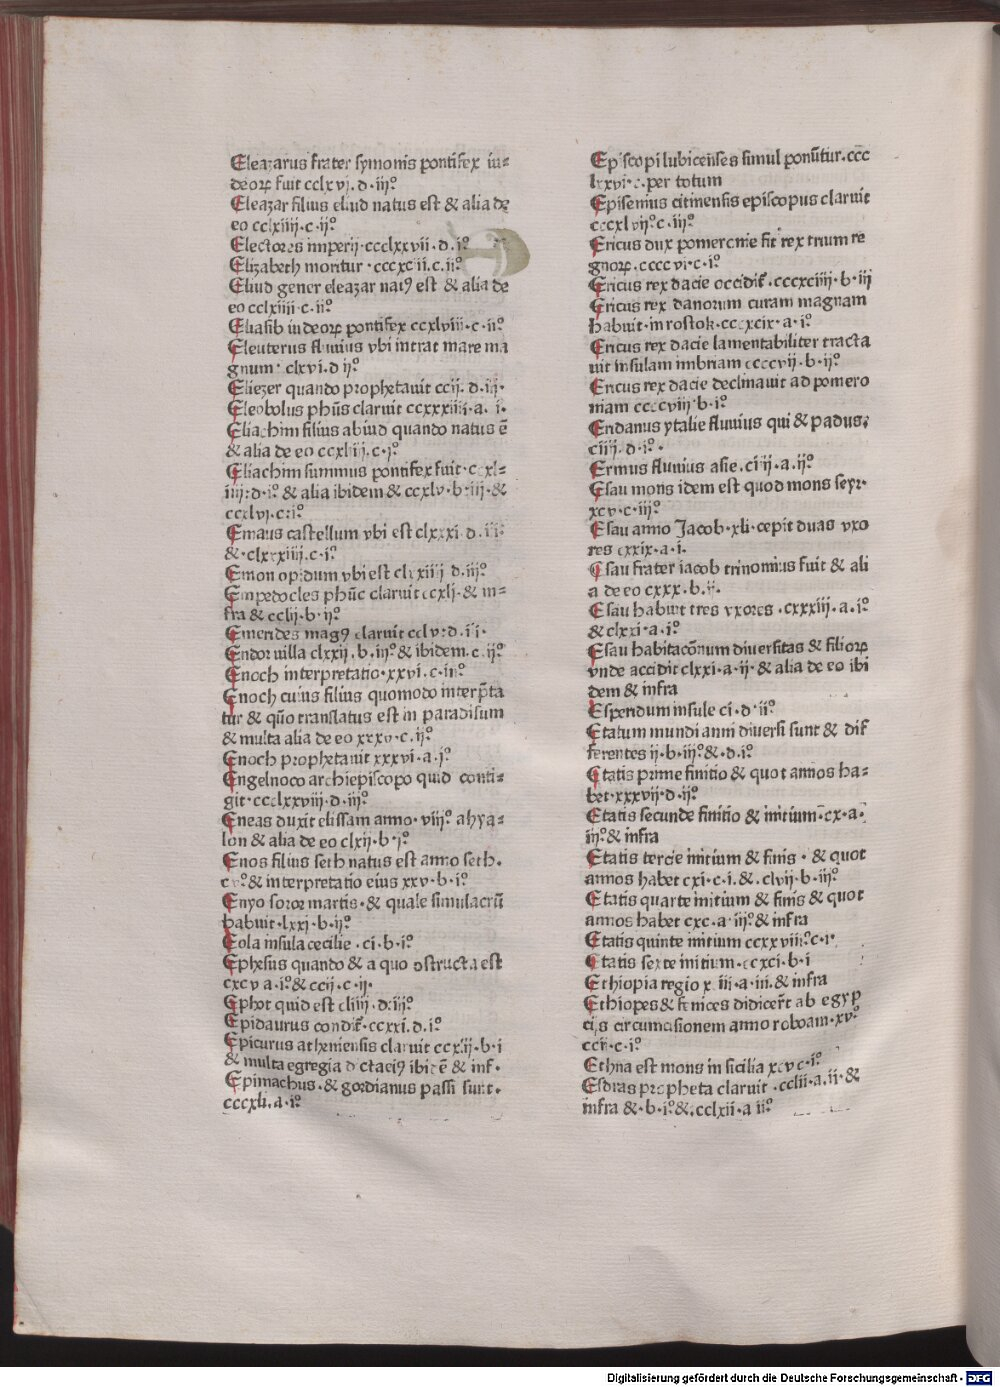 Eleazarus frater symonis pontifex iu-
deoꝝ fuit cclxvj. d. iijº
Eleazar filius eliud natus est & alia de
eo cclxiiij. c. ijº
Electores imperij. ccclxxvii. d. iº
Elizabeth moritur. cccxcii. c. iiº
Eliud gener eleazar natꝰ est & alia de
eo cclxiiii. c. ijº
Eliasib iudeoꝝ pontifex ccxlviii. c. iiº
Eleuterus fluuius vbi intrat mare ma
gnum. clxvi. d ijº
Eliezer quando prophetauit ccij. d.
Cleobolus phūs claruit ccxxxiiij. a. i.
Eliachim filius abiud quando natus ē
& alia de eo ccxliij. c. iº
Eliachim summus pontifex fuit. ccxl-
iiij. d. iº & alia ibidem & ccxlv. b. iij. &
ccxlvi. c. iº
Emaus castellum vbi est clxxxi. d. iiº
&. clxxxiiij. c. iº
Emon opidum vbi est clxxiiij d. iijº
Empedocles phūc claruit ccxlj. & in-
fra & cclij. b. ijº
Emerides magꝰ claruit cclv. d. ii.
Endor villa clxxij. b. iijº & ibidem c. ijº
Enoch interpretatio. xxvi. c. iiiº
Enoch cuius filius quomodo interp̄ta
tur & quō translatus est in paradisum
& multa alia de eo xxxv. c. ijº
Enoch prophetauit xxxvi. a. jº
Engelnoco archiepiscopo quid conti-
git. ccclxxviii. d. iijº
Eneas duxit elissam anno. viijº ahya-
lon & alia de eo clxij. b. jº
Enos filius seth natus est anno seth.
cvº & interpretatio eius xxv. b. iº
Enyo soror martis. & quale simulacrū
habuit. lxxj. b. ijº
Eola insula cecilie. ci. b. iº
Ephesus quando & a quo ↄstructa est
cxcv a. iº & ccij. c. ij.
Ephot quid est cliiij. d. iijº
Epidaurus condit̄. ccxxi. d. iº
Epicurus atheniensis claruit ccxlij. b. i
& multa egregia dictaeiꝰ ibidē & inf.
Epimachus. & gordianus passi sunt.
cccxli. a. iº
Episcopi lubicenses simul ponūtur. ccc
lxxvi. c. per totum
Episenius citinensis episcopus claruit
cccxlvijº c. iijº
Ericus dux pomeranie fit rex trium re
gnoꝝ. ccccvi. c. iº
Ericus rex dacie occidit̄. cccxciiij. b. iij
Ericus rex danorum curam magnam
habuit. in rostok. cccxcix. a. iº
Ericus rex dacie lamentabiliter tracta
uit insulam imbriam ccccvij. b. ijº
Ericus rex dacie declinauit ad pomero
niam ccccviij. b. iº
Eridanus ytalie fluuius qui & padus.
ciiij. d. iº.
Ermus fluuius asie. ciiij. a. ijº
Esau mons idem est quod mons seyr.
xcv. c. iijº
Esau anno Jacob. xli. cepit duas vxo
res cxxix. a. i.
Esau frater iacob trinomius fuit & ali
a de eo cxxx. b. ij.
Esau habuit tres vxores. cxxxiij. a. iº
& clxxi. a. iº
Esau habitacōnum diuersitas & filioꝝ
vnde accidit clxxi. a. ij. & alia de eo ibi
dem & infra
Esperidum insule ci. d. ijº
Etatum mundi anni diuersi sunt & dif
ferentes ij. b. iijº &. d. iº
Etatis prime finitio & quot annos ha-
bet. xxxvij. d. ijº
Etatis secunde finitio & initium. cx. a.
iijº & infra
Etatis tercie initium & finis. & quot
annos habet cxi. c. i. &. clvij. b. iijº
Etatis quarte initium & finis & quot
annos habet cxc. a. iijº & infra
Etatis quinte initium ccxxviijº c. iº
Etatis sexte initium. ccxci. b. i
Ethiopia regio x. iii. a. iii. & infra
Ethiopes & fenices didicer̄t ab egyp
cijs circumcisionem anno roboam. xvº
ccij. c. iº
Ethna est mons in sicilia xcv c. iº
Esdras propheta claruit. cclij. a. ij. &
infra &. b. iº &. cclxii. a iiº
Digitalisierung gefördert durch die Deutsche Forschungsgemeinschaft - DFG